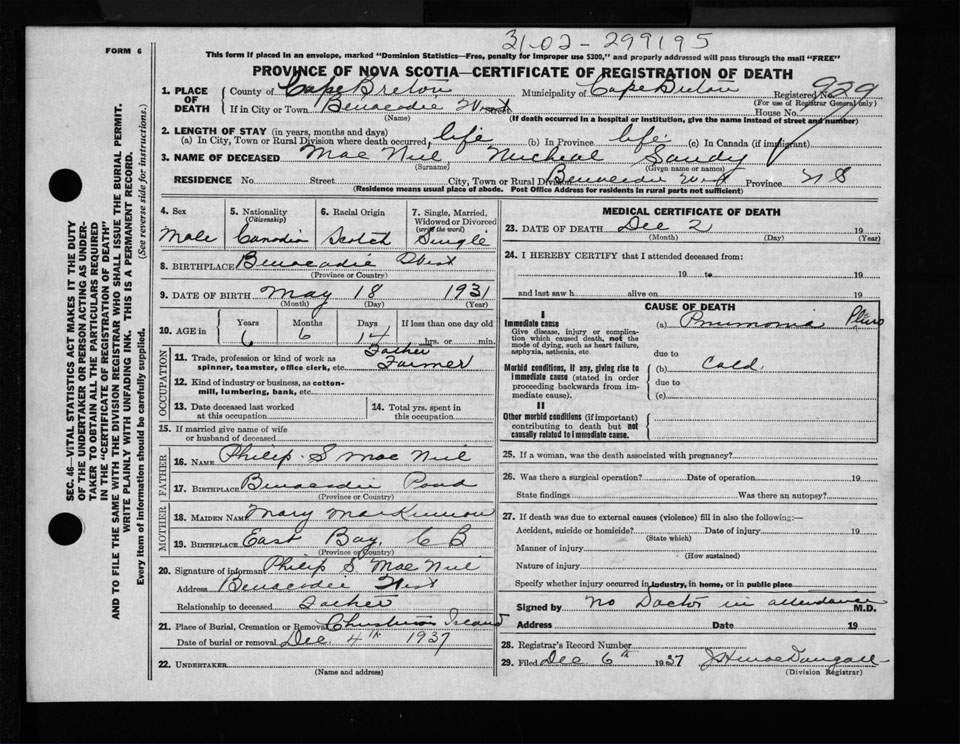 31-02-299195
FORM 6
This form if placed in an envelope, marked "Dominion Statistics—Free, penalty for improper use $300," and properly addressed will pass through the mail "FREE"
PROVINCE OF NOVA SCOTIA—CERTIFICATE OF REGISTRATION OF DEATH
1. PLACE OF DEATH
County of Cape Breton Municipality of Cape Breton Registered No. 929
(For use of Registrar General only)
If in City or Town Benacadie West Street House No.
(Name) (If death occurred in a hospital or institution, give the name instead of street and number)
2. LENGTH OF STAY (in years, months and days)
(a) In City, Town or Rural Division where death occurred, life (b) In Province life (c) In Canada (if immigrant)
3. NAME OF DECEASED Mac Neil Micheal Sandy
(Surname) (Given name or names)
RESIDENCE No. Street City, Town or Rural Division Benacadie West Province N S
(Residence means usual place of abode. Post Office Address for residents in rural parts not sufficient)
4. Sex
Male
5. Nationality
(Citizenship)
Canadia
6. Racial Origin
Scotch
7. Single, Married, Widowed or Divorced
(write the word)
Single
8. BIRTHPLACE Benacadie West
(Province or Country)
9. DATE OF BIRTH May 18 1931
(Month) (Day) (Year)
10. AGE in Years Months Days If less than one day old
6 6 14 hrs. or min.
OCCUPATION
11. Trade, profession or kind of work as spinner, teamster, office clerk, etc. Father Farmer
12. Kind of industry or business, as cotton-mill, lumbering, bank, etc.
13. Date deceased last worked at this occupation
14. Total yrs. spent in this occupation
15. If married give name of wife or husband of deceased
FATHER
16. NAME Philip S Mac Neil
17. BIRTHPLACE Benacadie Pond
(Province or Country)
MOTHER
18. MAIDEN NAME Mary MacKinnon
19. BIRTHPLACE East Bay, C B
(Province or Country)
20. Signature of informant Philip S Mac Neil
Address Benacadie West
Relationship to deceased Father
21. Place of Burial, Cremation or Removal Christmas Island
Date of burial or removal Dec. 4th 1937
22. UNDERTAKER
(Name and address)
MEDICAL CERTIFICATE OF DEATH
23. DATE OF DEATH Dec 2 19
(Month) (Day) (Year)
24. I HEREBY CERTIFY that I attended deceased from:
19 to 19
and last saw h alive on 19
CAUSE OF DEATH
I
Immediate cause
Give disease, injury or complication which caused death, not the mode of dying, such as heart failure, asphyxia, asthenia, etc.
(a) Pnumonia Pluro
due to
Morbid conditions, if any, giving rise to immediate cause (stated in order proceeding backwards from immediate cause).
(b) Cold.
due to
(c)
II
Other morbid conditions (if important) contributing to death but not causally related to immediate cause.
25. If a woman, was the death associated with pregnancy?
26. Was there a surgical operation? Date of operation 19
State findings Was there an autopsy?
27. If death was due to external causes (violence) fill in also the following:—
Accident, suicide or homicide? Date of injury 19
(State which)
Manner of injury
(How sustained)
Nature of injury
Specify whether injury occurred in industry, in home, or in public place
Signed by No Doctor in attendance M.D.
Address Date 19
28. Registrar's Record Number
29. Filed Dec 6th 1937 J H MacDougall
(Division Registrar)
SEC. 46—VITAL STATISTICS ACT MAKES IT THE DUTY
OF THE UNDERTAKER OR PERSON ACTING AS UNDER-
TAKER TO OBTAIN ALL THE PARTICULARS REQUIRED
IN THE "CERTIFICATE OF REGISTRATION OF DEATH"
AND TO FILE THE SAME WITH THE DIVISION REGISTRAR WHO SHALL ISSUE THE BURIAL PERMIT.
WRITE PLAINLY WITH UNFADING INK. THIS IS A PERMANENT RECORD.
Every item of information should be carefully supplied. (See reverse side for instructions.)